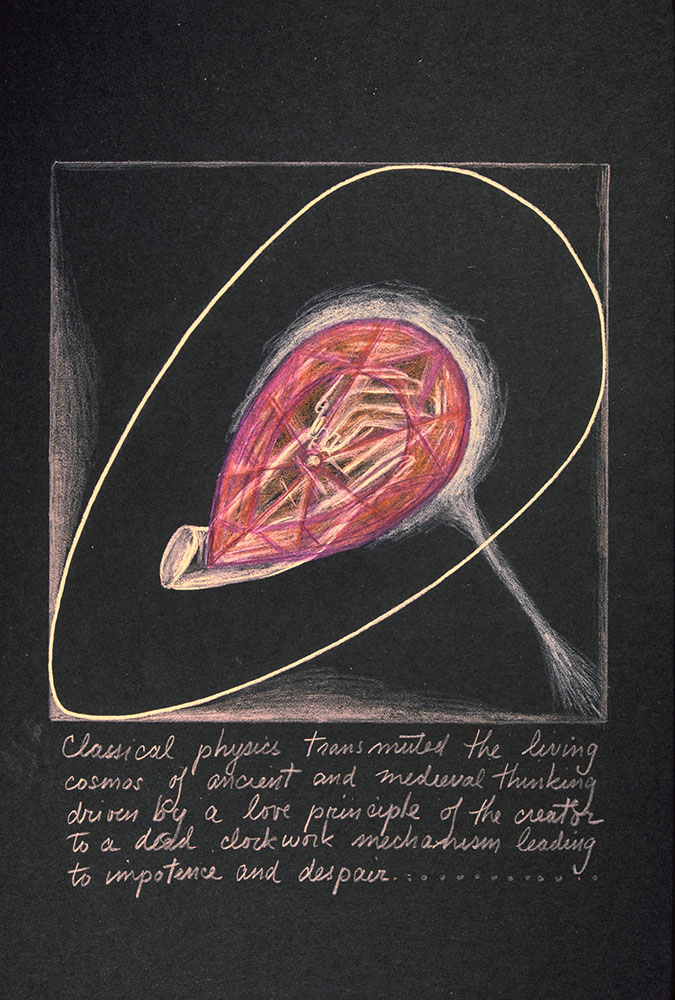 Classical physics transmuted the living
cosmos of ancient and medieval thinking
driven by a love principle of the creator
to a dead clockwork mechanism leading
to impotence and despair..............